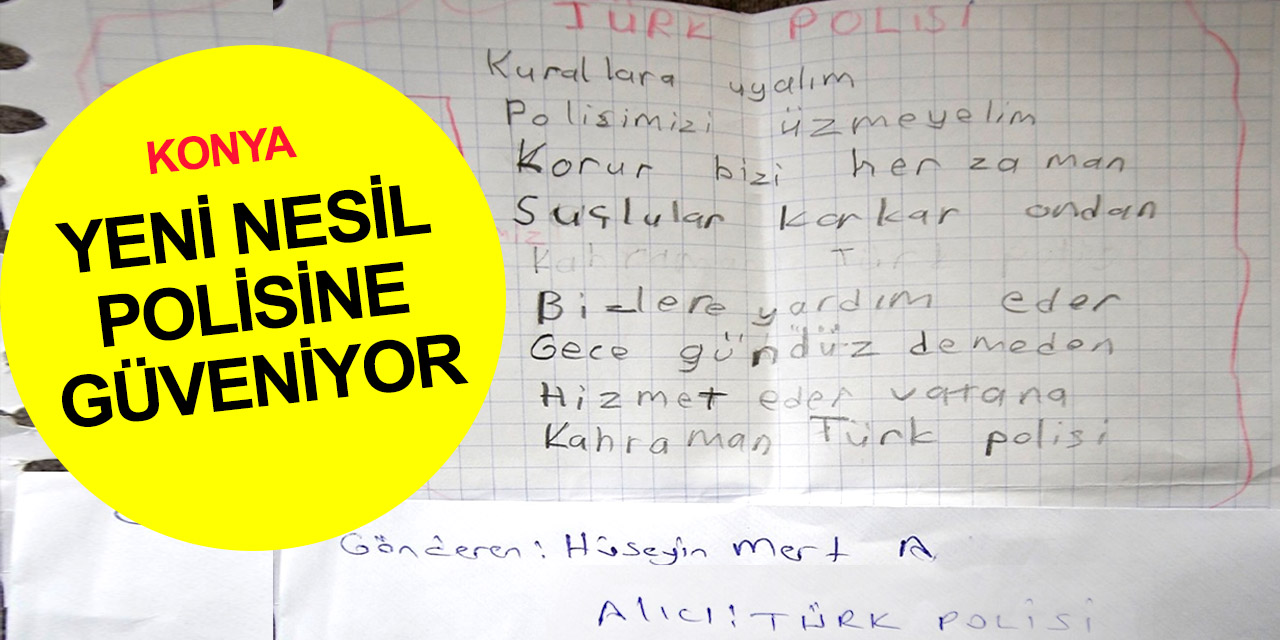 KONYA
YENİ NESİL
POLİSİNE
GÜVENİYOR
TÜRK POLİSİ
Kurallara uyalım
Polisimizi üzmeyelim
Korur bizi her zaman
Suçlular korkar ondan
Bizlere yardım eder
Gece gündüz demeden
Hizmet eder vatana
Kahraman Türk polisi
Gönderen: Hüseyin Mert A
Alıcı: TÜRK POLİSİ